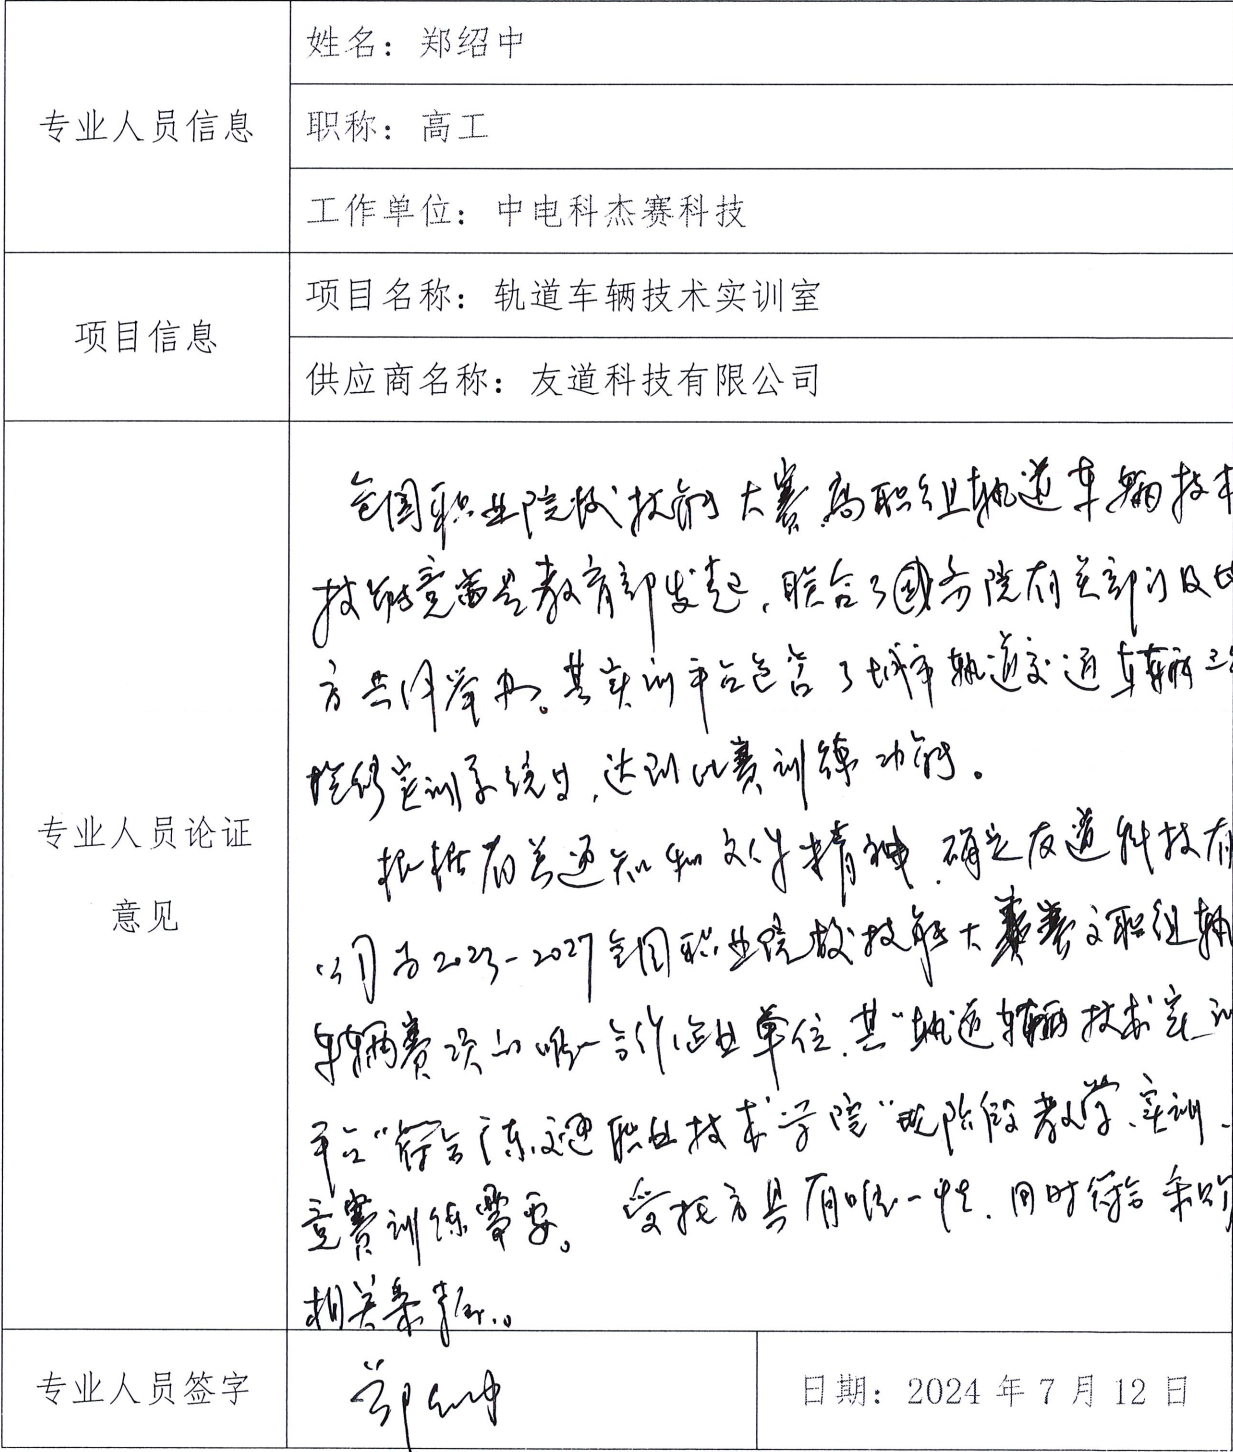 专业人员信息
姓名：郑绍中
职称：高工
工作单位：中电科杰赛科技
项目信息
项目名称：轨道车辆技术实训室
供应商名称：友道科技有限公司
专业人员论证
意见
全国职业院校技能大赛高职组轨道车辆技术
技能竞赛是教育部发起，联合了国务院有关部门及地
方共同举办。其实训平台包含了城市轨道交通车辆
检修实训系统，达到比赛训练功能。
根据有关通知和文件精神，确定友道科技有
公司为2023-2027全国职业院校技能大赛赛职组轨
车辆赛项的唯一合作企业单位，其“轨道车辆技术实训
平台”符合广东交通职业技术学院“现阶段教学、实训、
竞赛训练需要。受托方具有唯一性，同时符合采购
相关条
专业人员签字
郑绍中
日期：2024年7月12日